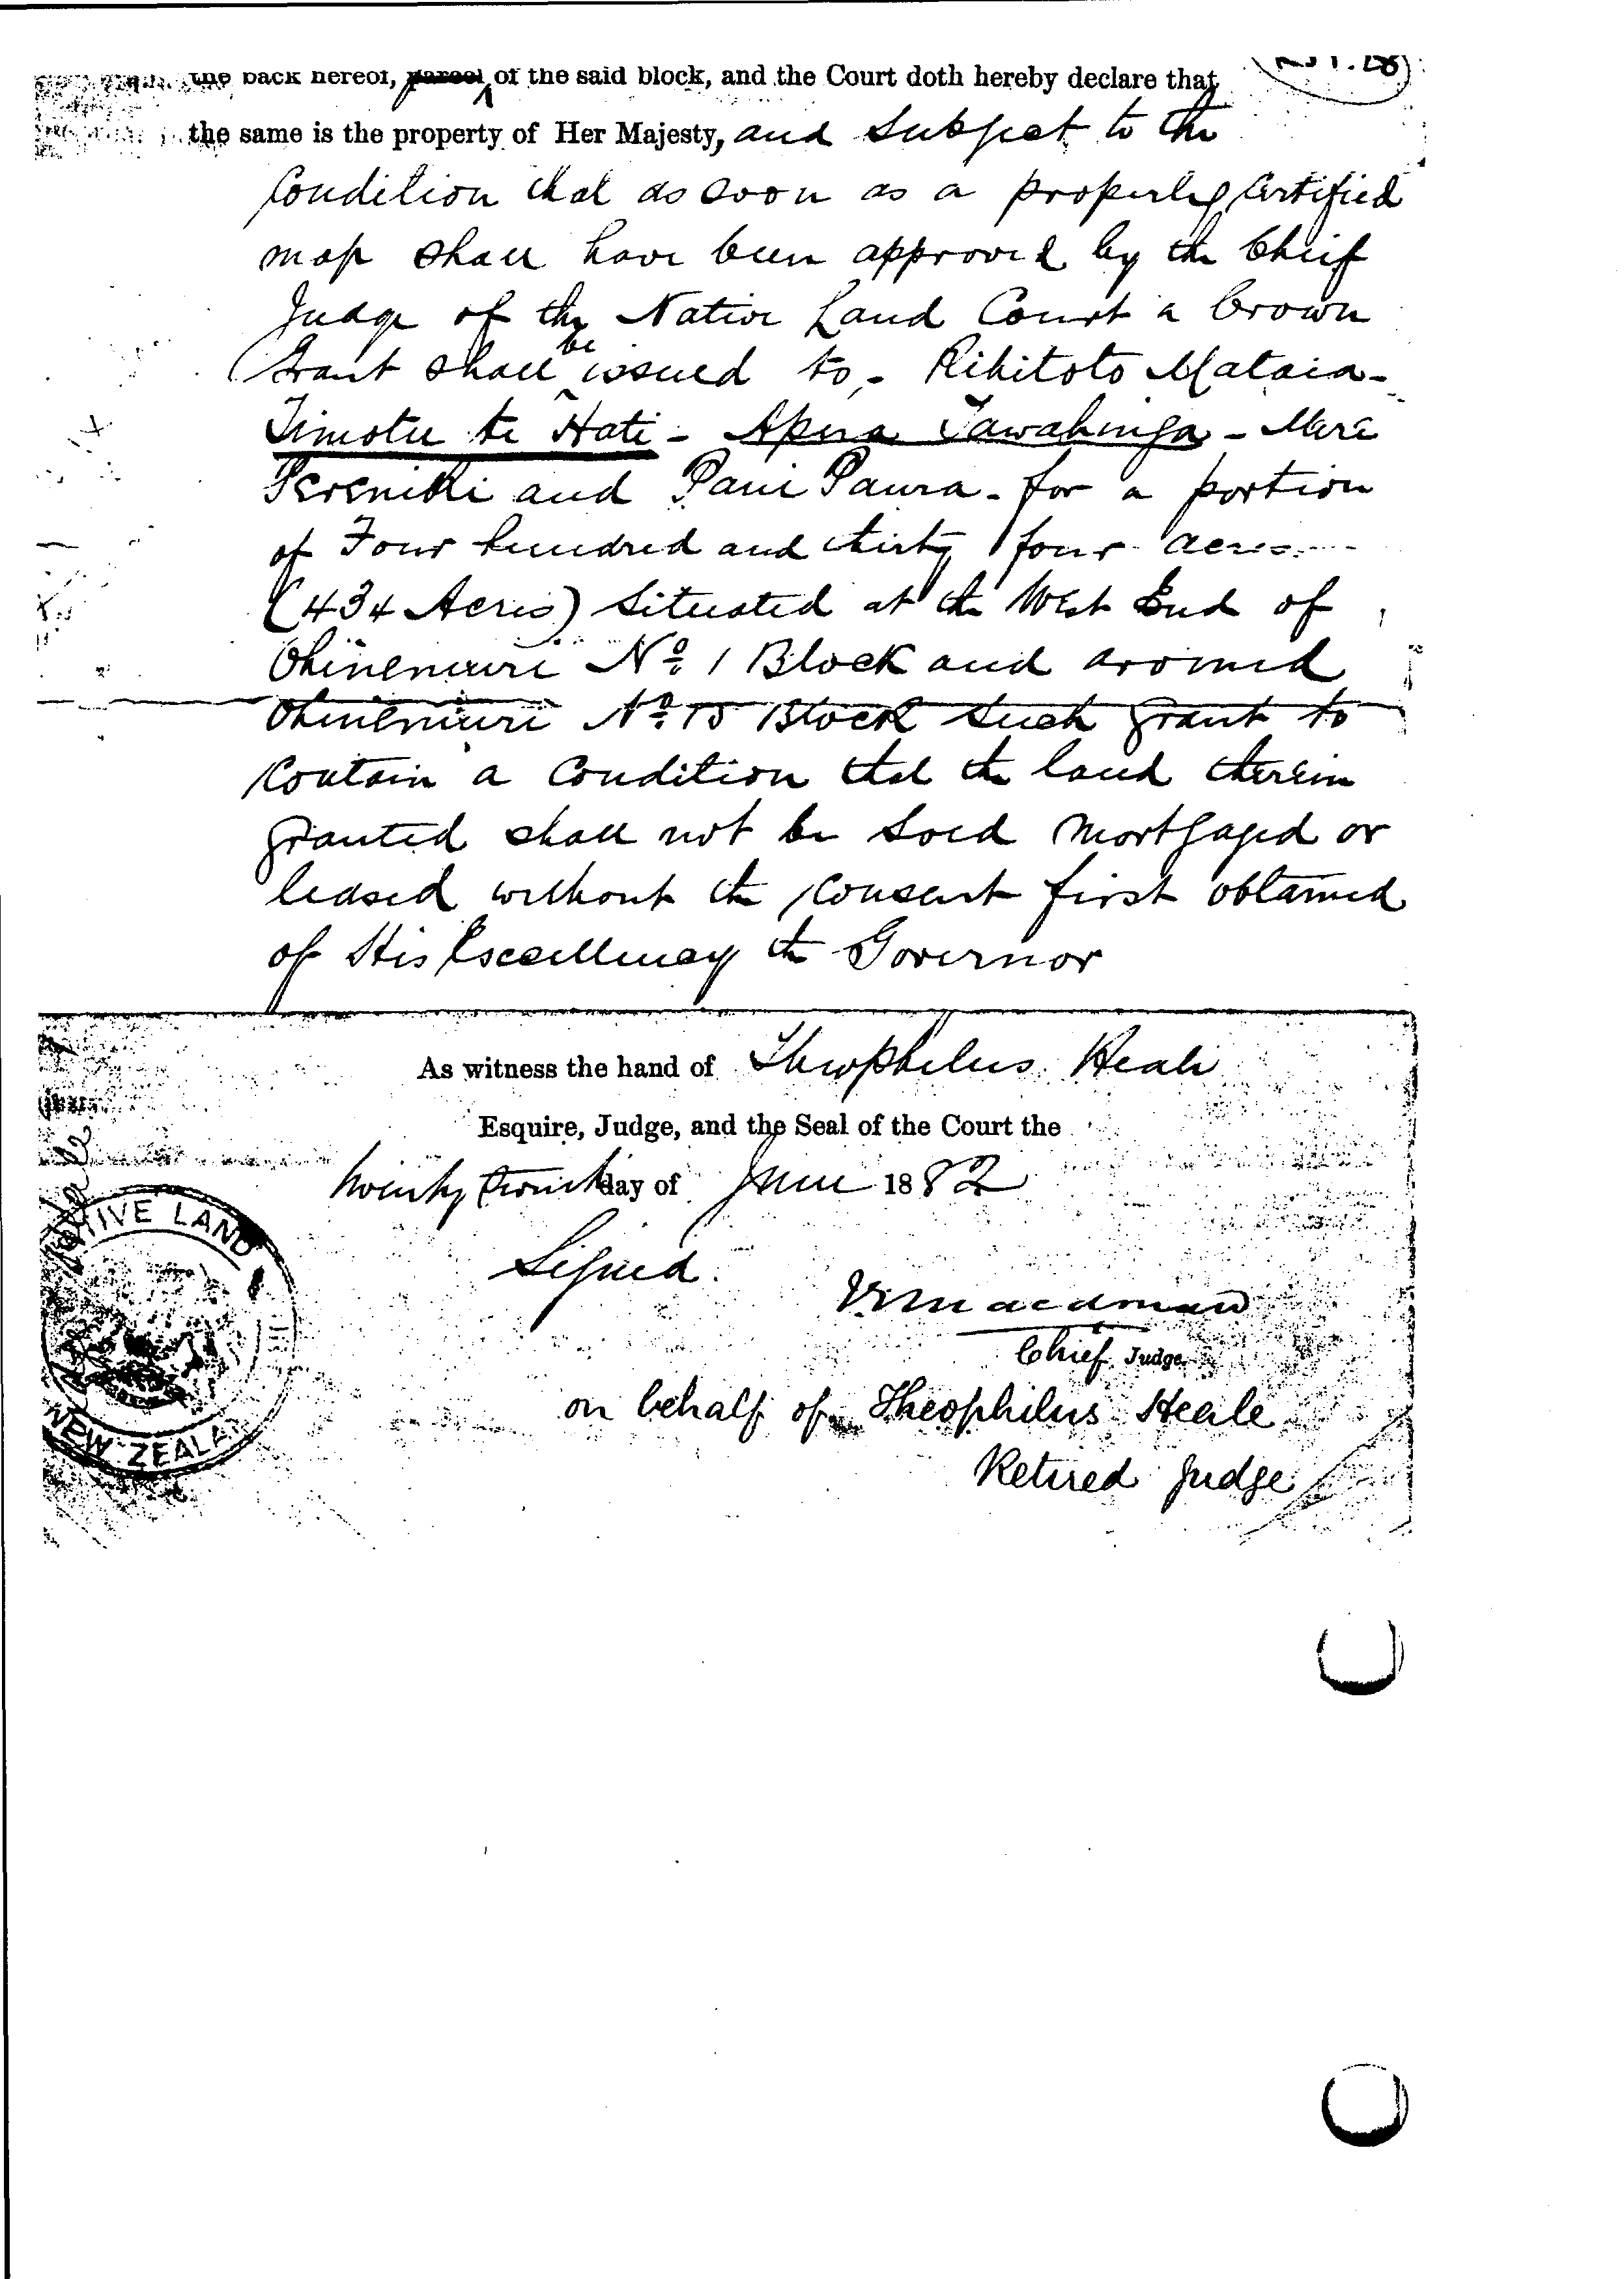 the back hereof, parcel of the said block, and the Court doth hereby declare that
the same is the property of Her Majesty, and subject to the
Condition that as soon as a properly certified
map shall have been approved by the Chief
Judge of the Native Land Court a Crown
Grant shall be issued to - Rihitoto Mataia -
Timotu te Hati - Apera Tawahinga - Mere
Tereniki and Pani Paura - for a portion
of Four hundred and thirty four acres
(434 Acres) situated at the West End of
Ohinemuri No. 1 Block and around
Ohinemuri No. Block such grant to
Contain a Condition that the land therein
granted shall not be sold mortgaged or
leased without the consent first obtained
of His Excellency the Governor
As witness the hand of Theophilus Heale
Esquire, Judge, and the Seal of the Court the
day of June 1882
Signed.
Chief Judge
on behalf of Theophilus Heale
Retired Judge
NATIVE LAND
NEW ZEALAND